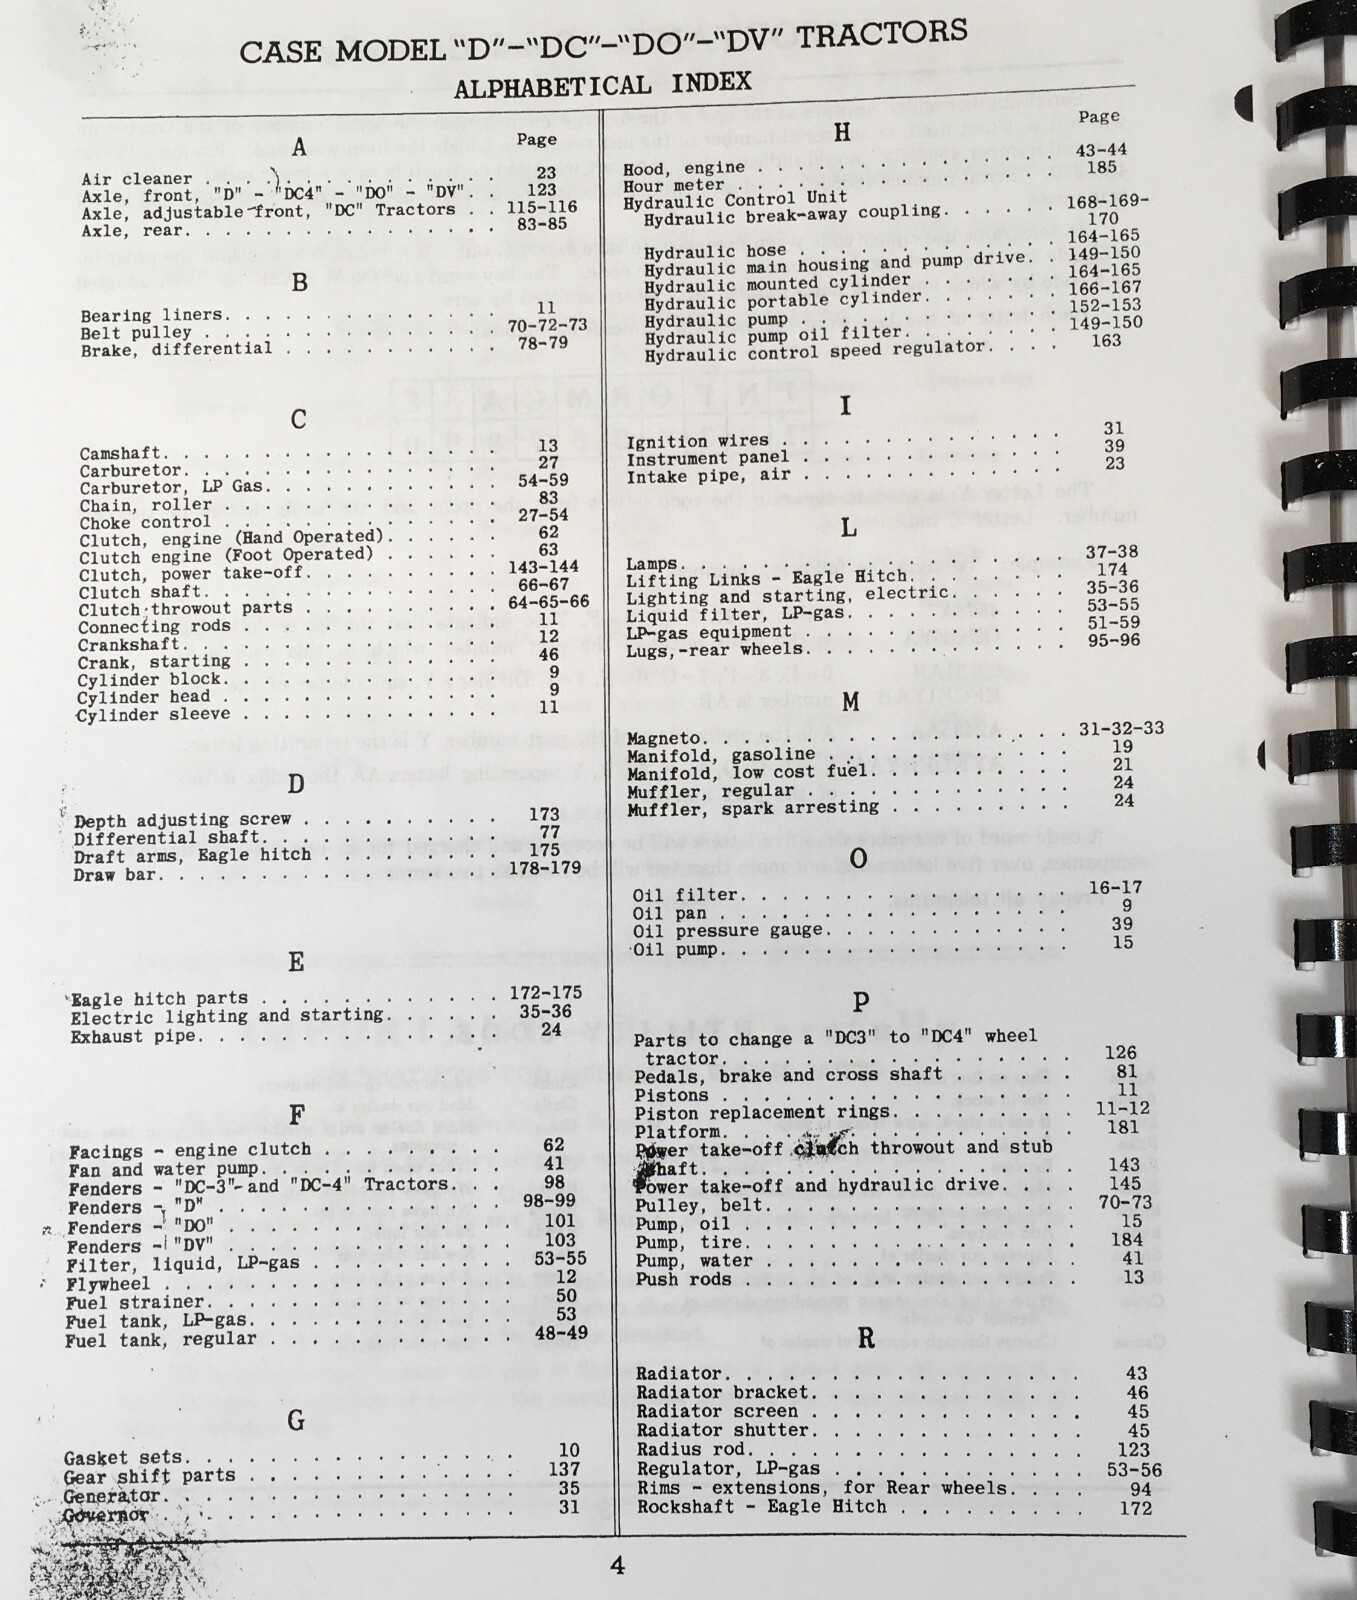 CASE MODEL "D"-"DC"-"DO"-"DV" TRACTORS
ALPHABETICAL INDEX
Page
A
Air cleaner . . . . . . . . . . . . . . . . 23
Axle, front, "D" - "DC4" - "DO" - "DV". . . 123
Axle, adjustable front, "DC" Tractors . . 115-116
Axle, rear. . . . . . . . . . . . . . . . 83-85
B
Bearing liners. . . . . . . . . . . . . . 11
Belt pulley . . . . . . . . . . . . . . 70-72-73
Brake, differential . . . . . . . . . . . 78-79
C
Camshaft. . . . . . . . . . . . . . . . . 13
Carburetor. . . . . . . . . . . . . . . . 27
Carburetor, LP Gas. . . . . . . . . . . . 54-59
Chain, roller . . . . . . . . . . . . . . 83
Choke control . . . . . . . . . . . . . . 27-54
Clutch, engine (Hand Operated). . . . . . 62
Clutch engine (Foot Operated) . . . . . . 63
Clutch, power take-off. . . . . . . . . . 143-144
Clutch shaft. . . . . . . . . . . . . . . 66-67
Clutch throwout parts . . . . . . . . . . 64-65-66
Connecting rods . . . . . . . . . . . . . 11
Crankshaft. . . . . . . . . . . . . . . . 12
Crank, starting . . . . . . . . . . . . . 46
Cylinder block. . . . . . . . . . . . . . 9
Cylinder head . . . . . . . . . . . . . . 9
Cylinder sleeve . . . . . . . . . . . . . 11
D
Depth adjusting screw . . . . . . . . . . 173
Differential shaft. . . . . . . . . . . . 77
Draft arms, Eagle hitch . . . . . . . . . 175
Draw bar. . . . . . . . . . . . . . . . . 178-179
E
Eagle hitch parts . . . . . . . . . . . . 172-175
Electric lighting and starting. . . . . . 35-36
Exhaust pipe. . . . . . . . . . . . . . . 24
F
Facings - engine clutch . . . . . . . . . 62
Fan and water pump. . . . . . . . . . . . 41
Fenders - "DC-3" and "DC-4" Tractors. . . 98
Fenders - "D" . . . . . . . . . . . . . . 98-99
Fenders - "DO" . . . . . . . . . . . . . 101
Fenders - "DV" . . . . . . . . . . . . . 103
Filter, liquid, LP-gas . . . . . . . . . 53-55
Flywheel . . . . . . . . . . . . . . . . 12
Fuel strainer. . . . . . . . . . . . . . 50
Fuel tank, LP-gas. . . . . . . . . . . . 53
Fuel tank, regular . . . . . . . . . . . 48-49
G
Gasket sets. . . . . . . . . . . . . . . 10
Gear shift parts . . . . . . . . . . . . 137
Generator. . . . . . . . . . . . . . . . 35
Governor . . . . . . . . . . . . . . . . 31
Page
H
Hood, engine . . . . . . . . . . . . . . 43-44
Hour meter . . . . . . . . . . . . . . . 185
Hydraulic Control Unit
Hydraulic break-away coupling. . . . . . 168-169-
170
Hydraulic hose . . . . . . . . . . . . . 164-165
Hydraulic main housing and pump drive. . 149-150
Hydraulic mounted cylinder . . . . . . . 164-165
Hydraulic portable cylinder. . . . . . . 166-167
Hydraulic pump . . . . . . . . . . . . . 152-153
Hydraulic pump oil filter. . . . . . . . 149-150
Hydraulic control speed regulator. . . . 163
I
Ignition wires . . . . . . . . . . . . . 31
Instrument panel . . . . . . . . . . . . 39
Intake pipe, air . . . . . . . . . . . . 23
L
Lamps. . . . . . . . . . . . . . . . . . 37-38
Lifting Links - Eagle Hitch. . . . . . . 174
Lighting and starting, electric. . . . . 35-36
Liquid filter, LP-gas. . . . . . . . . . 53-55
LP-gas equipment . . . . . . . . . . . . 51-59
Lugs,-rear wheels. . . . . . . . . . . . 95-96
M
Magneto. . . . . . . . . . . . . . . . . 31-32-33
Manifold, gasoline . . . . . . . . . . . 19
Manifold, low cost fuel. . . . . . . . . 21
Muffler, regular . . . . . . . . . . . . 24
Muffler, spark arresting . . . . . . . . 24
O
Oil filter. . . . . . . . . . . . . . . . 16-17
Oil pan . . . . . . . . . . . . . . . . . 9
Oil pressure gauge. . . . . . . . . . . . 39
Oil pump. . . . . . . . . . . . . . . . . 15
P
Parts to change a "DC3" to "DC4" wheel
tractor. . . . . . . . . . . . . . . . . 126
Pedals, brake and cross shaft . . . . . . 81
Pistons . . . . . . . . . . . . . . . . . 11
Piston replacement rings. . . . . . . . . 11-12
Platform. . . . . . . . . . . . . . . . . 181
Power take-off clutch throwout and stub
shaft. . . . . . . . . . . . . . . . . . 143
Power take-off and hydraulic drive. . . . 145
Pulley, belt. . . . . . . . . . . . . . . 70-73
Pump, oil . . . . . . . . . . . . . . . . 15
Pump, tire. . . . . . . . . . . . . . . . 184
Pump, water . . . . . . . . . . . . . . . 41
Push rods . . . . . . . . . . . . . . . . 13
R
Radiator. . . . . . . . . . . . . . . . . 43
Radiator bracket. . . . . . . . . . . . . 46
Radiator screen . . . . . . . . . . . . . 45
Radiator shutter. . . . . . . . . . . . . 45
Radius rod. . . . . . . . . . . . . . . . 123
Regulator, LP-gas . . . . . . . . . . . . 53-56
Rims - extensions, for Rear wheels. . . . 94
Rockshaft - Eagle Hitch . . . . . . . . . 172
4